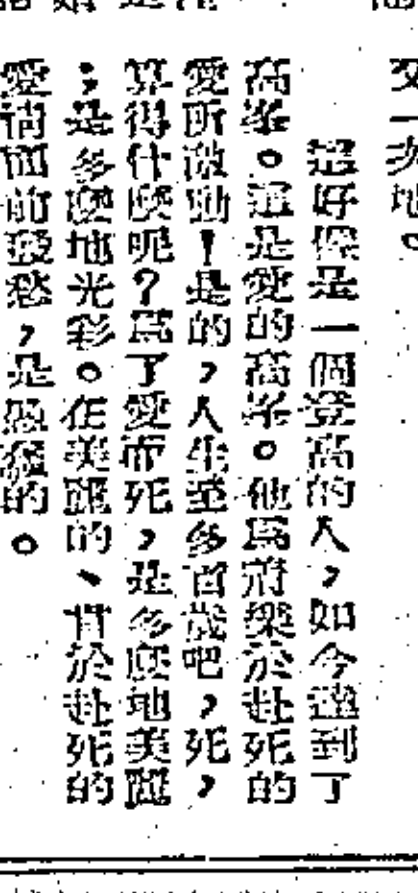 又一次地。
這好像是一個登高的人，如今達到了
高峯。這是愛的高峯。他爲樂於赴死的
愛所激動！是的，人生至多百歲吧，死，
算得什麼呢？爲了愛而死，是多麼地美麗
，是多麼地光彩。在美麗的、甘於赴死的
愛情面前發愁，是愚蠢的。